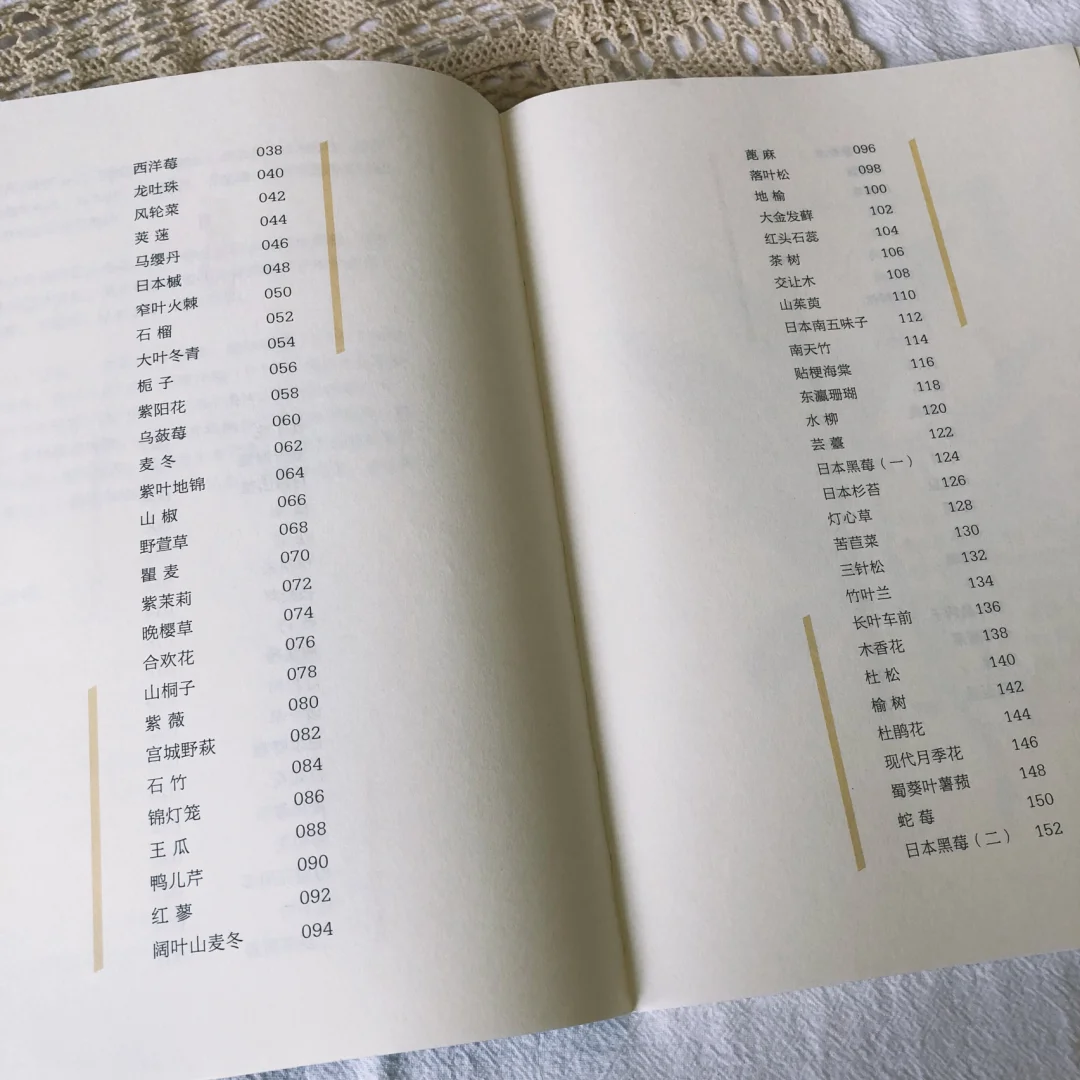 西洋莓 038
龙吐珠 040
风轮菜 042
荚 蒾 044
马缨丹 046
日本槭 048
窄叶火棘 050
石 榴 052
大叶冬青 054
栀 子 056
紫阳花 058
乌蔹莓 060
麦 冬 062
紫叶地锦 064
山 椒 066
野萱草 068
瞿 麦 070
紫茉莉 072
晚樱草 074
合欢花 076
山桐子 078
紫 薇 080
宫城野萩 082
石 竹 084
锦灯笼 086
王 瓜 088
鸭儿芹 090
红 蓼 092
阔叶山麦冬 094
蓖 麻 096
落叶松 098
地 榆 100
大金发藓 102
红头石蕊 104
茶 树 106
交让木 108
山茱萸 110
日本南五味子 112
南天竹 114
贴梗海棠 116
东瀛珊瑚 118
水 柳 120
芸 薹 122
日本黑莓（一） 124
日本杉苔 126
灯心草 128
苦苣菜 130
三针松 132
竹叶兰 134
长叶车前 136
木香花 138
杜 松 140
榆 树 142
杜鹃花 144
现代月季花 146
蜀葵叶薯蓣 148
蛇 莓 150
日本黑莓（二） 152